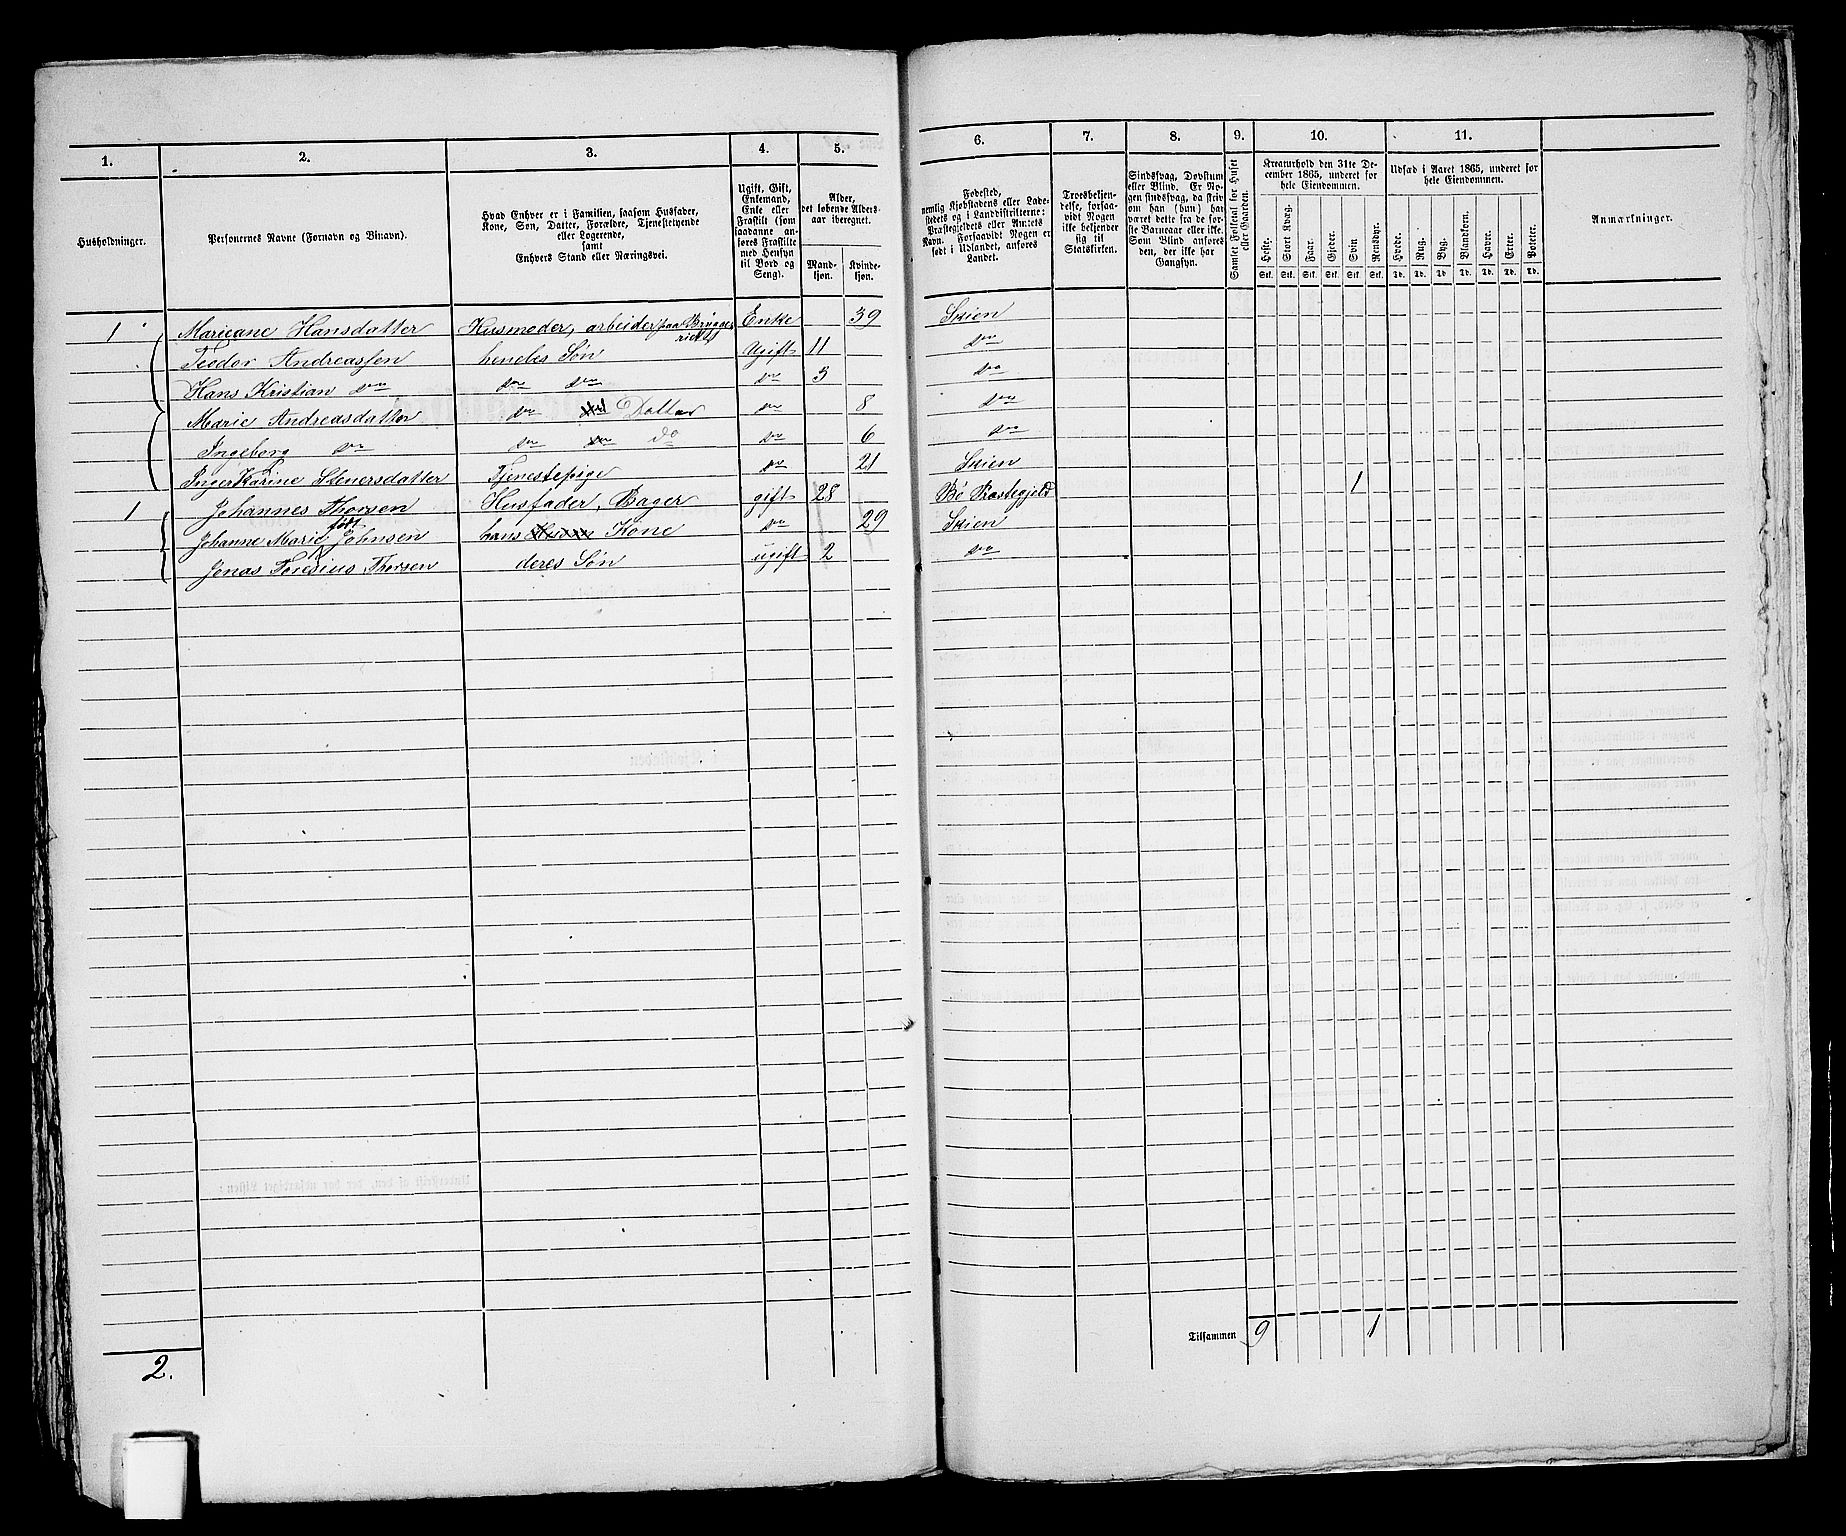 1. 2. 3. 4. 5. 6. 7. 8. 9. 10. 11.
Husholdninger.
Personernes Navne (Fornavn og Binavn).
Hvad Enhver er i Familien, saasom Husfader,
Kone, Søn, Datter, Forældre, Tjenestetyende
eller Logerende,
samt
Enhvers Stand eller Næringsvei.
Ugift, Gift,
Enkemand,
Enke eller
Fraskilt (som
saadanne an-
føres Fraskilte
med Hensyn
til Bord og
Seng).
Alder,
det løbende Alders-
aar iberegnet.
Mand-
kjøn.
Kvinde-
kjøn.
Fødested,
nemlig Kjøbstadens eller Lade-
stedets og i Landdistrikterne:
Præstegjeldets eller Amtets
Navn. Forsaavidt Nogen er
født i Udlandet, anføres
Landet.
Troesbekjen-
delse, forsaa-
vidt Nogen
ikke bekjender
sig til
Statskirken.
Sindssvag, Døvstum
eller Blind. Er No-
gen sindssvag, da skriv
om han (hun) har
været dette fra de før-
ste Barneaar eller ikke.
Som Blind anføres
den, der ikke har
Gangsyn.
Samlet Folketal for Huset
eller Gaarden.
Kreaturhold den 31te De-
cember 1865, underet for
hele Eiendommen.
Heste. Stort Kvæg. Faar. Gjeder. Svin Rensdyr.
Stk. Stk. Stk. Stk. Stk. Stk.
Udsæd i Aaret 1865, underet for
hele Eiendommen.
Hvede. Rug. Byg. Blandkorn. Havre. Erter. Poteter.
Td. Td. Td. Td. Td. Td. Td.
Anmærkninger.
1 Mariane Hansdatter Husmoder, arbeider paa Brygge- Enke 39 Skien
riet
Teodor Andreassen hendes Søn Ugift 11 do
Hans Kristian do do do do 3 do
Marie Andreasdatter do Datter do 8 do
Ingeborg do do do do 6 do
Inger Karine Stenersdatter Tjenestepige do 21 Skien
1 Johannes Thorsen Husfader, Bager gift 28 Bø Præstegjeld 1
født
Johanne Marie Johnsen hans Kone do 29 Skien
Jonas Thorsen deres Søn ugift 2 do
Tilsammen 9 1
2.